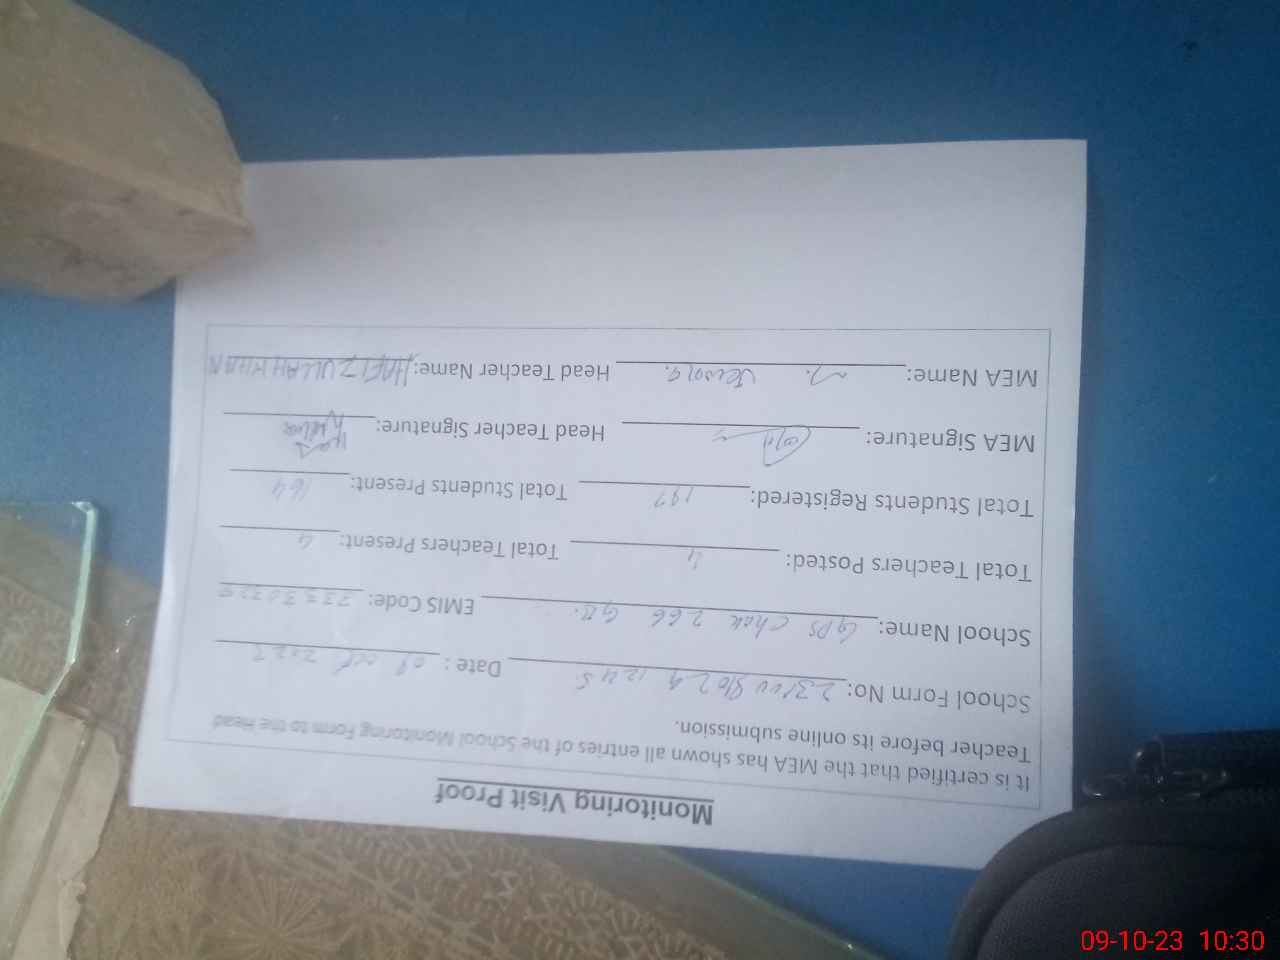 Monitoring Visit Proof
It is certified that the MEA has shown all entries of the School Monitoring Form to the Head
Teacher before its online submission.
School Form No: Date: oct 2023
School Name: GPS Chak 266 GB. EMIS Code:
Total Teachers Posted: 4 Total Teachers Present: 4
Total Students Registered: 197 Total Students Present: 164
MEA Signature: Head Teacher Signature:
MEA Name: Head Teacher Name: HAFIZULLAH KHAN
09-10-23 10:30